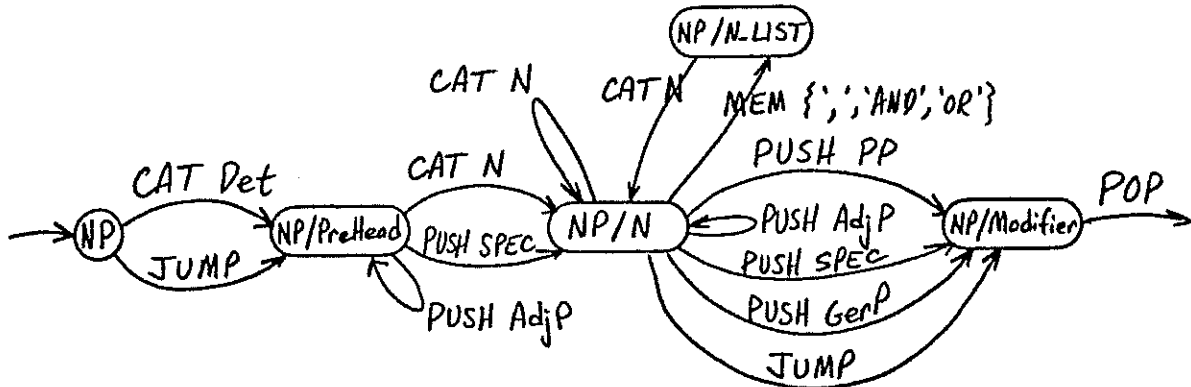 NP/N_LIST
CAT N
CAT N
MEM {',','AND','OR'}
CAT Det
CAT N
PUSH PP
POP
NP
NP/PreHead
NP/N
PUSH AdjP
NP/Modifier
JUMP
PUSH SPEC
PUSH SPEC
PUSH AdjP
PUSH GerP
JUMP